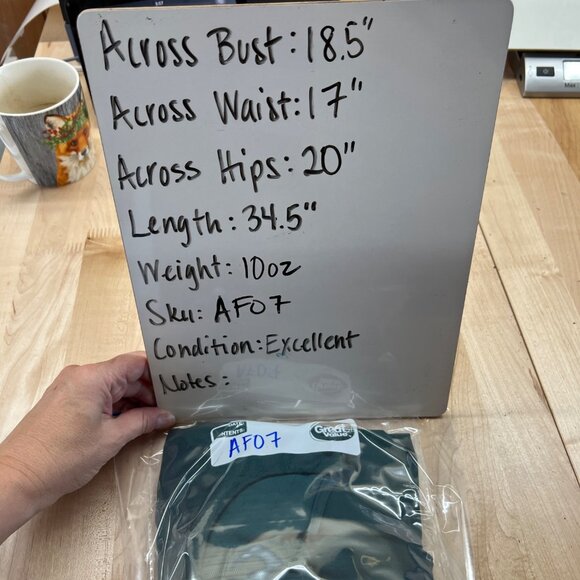 Across Bust: 18.5"
Across Waist: 17"
Across Hips: 20"
Length: 34.5"
Weight: 10oz
Sku: AF07
Condition: Excellent
Notes:
CONTENTS:
Great Value
AF07
Max